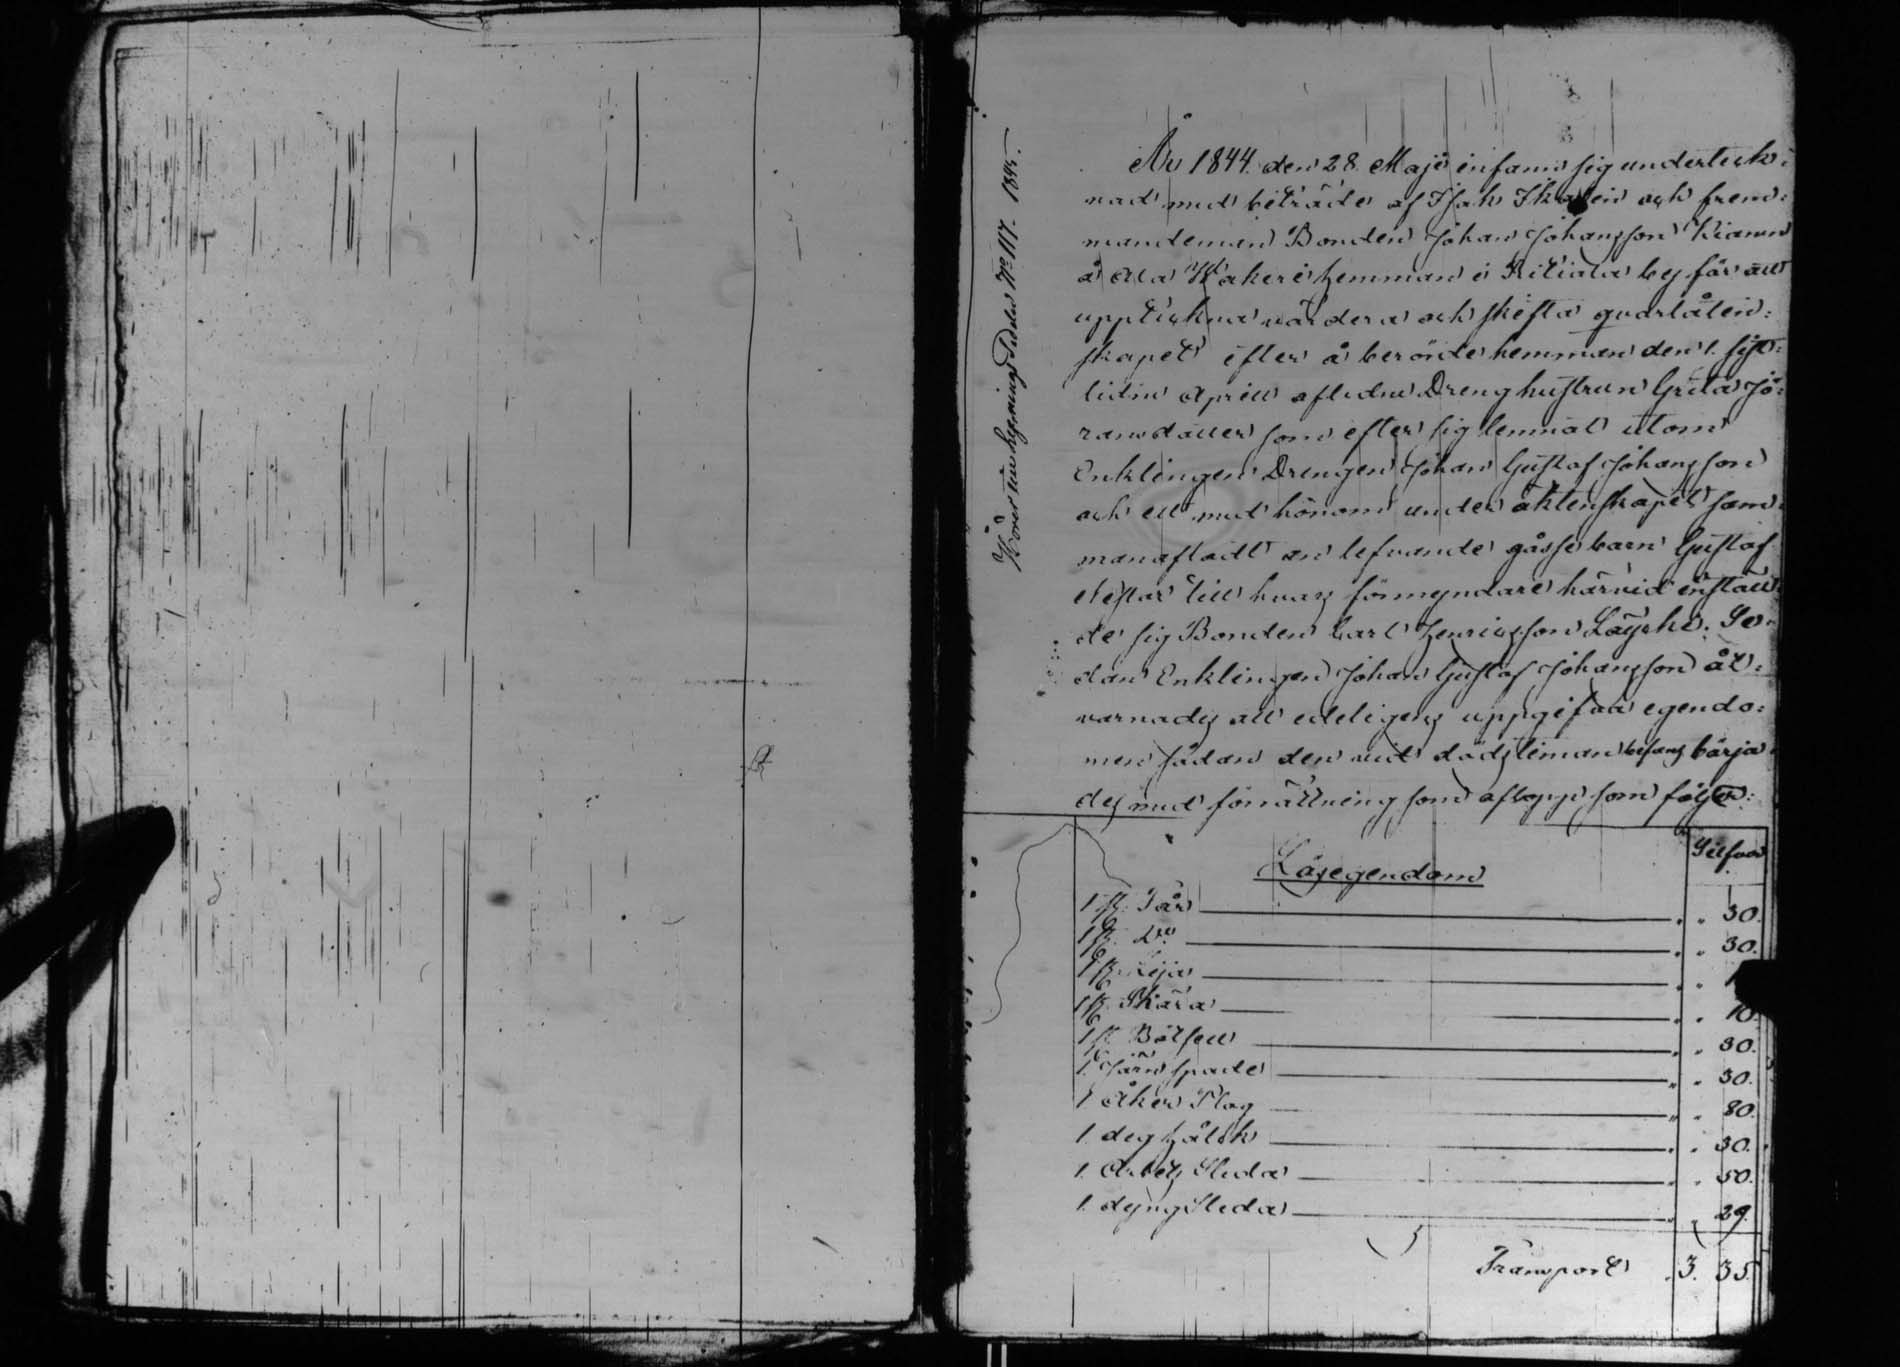 Hörer till N:o 117. 1845.
År 1844. den 28 Maji infann sig underteck-
nad med biträde af Isak och frem-
mandeman Bonden Johan Johansson
å Ala hemman i by för att
uppteckna värdera och skifta qvarlåten-
skapet efter å berörde hemman den 1. sist-
lidne Aprill aflidne Dreng hustrun Greta Jö-
ransdotter som efter sig lemnat utom
Enklingen Drengen Johan Gustaf Johansson
och ett med honom under äktenskapet sam-
manafladt än lefvande gåsse barn Gustaf
till hvars förmyndare härvid inställ-
de sig Bonden Carl Henricsson Se-
dan Enklingen Johan Gustaf Johansson åt-
varnades att edeligen uppgifva egendo-
men sådan den vid dödstiman befans börja-
des med förrättning som aflopp som följer:
Silfver
Lösegendom
1 st. " " 30.
1 st. D:o " " 30.
1 st. Lija " "
1 st. Skära " " 10.
1 st. Båtsell " " 30.
1. Järn spade " " 30.
1 Åker Plog " " 80.
1. " " 30.
1. Arbets Sleda " " 50.
1. dyng Sleda " " 29.
Transport 3. 35.